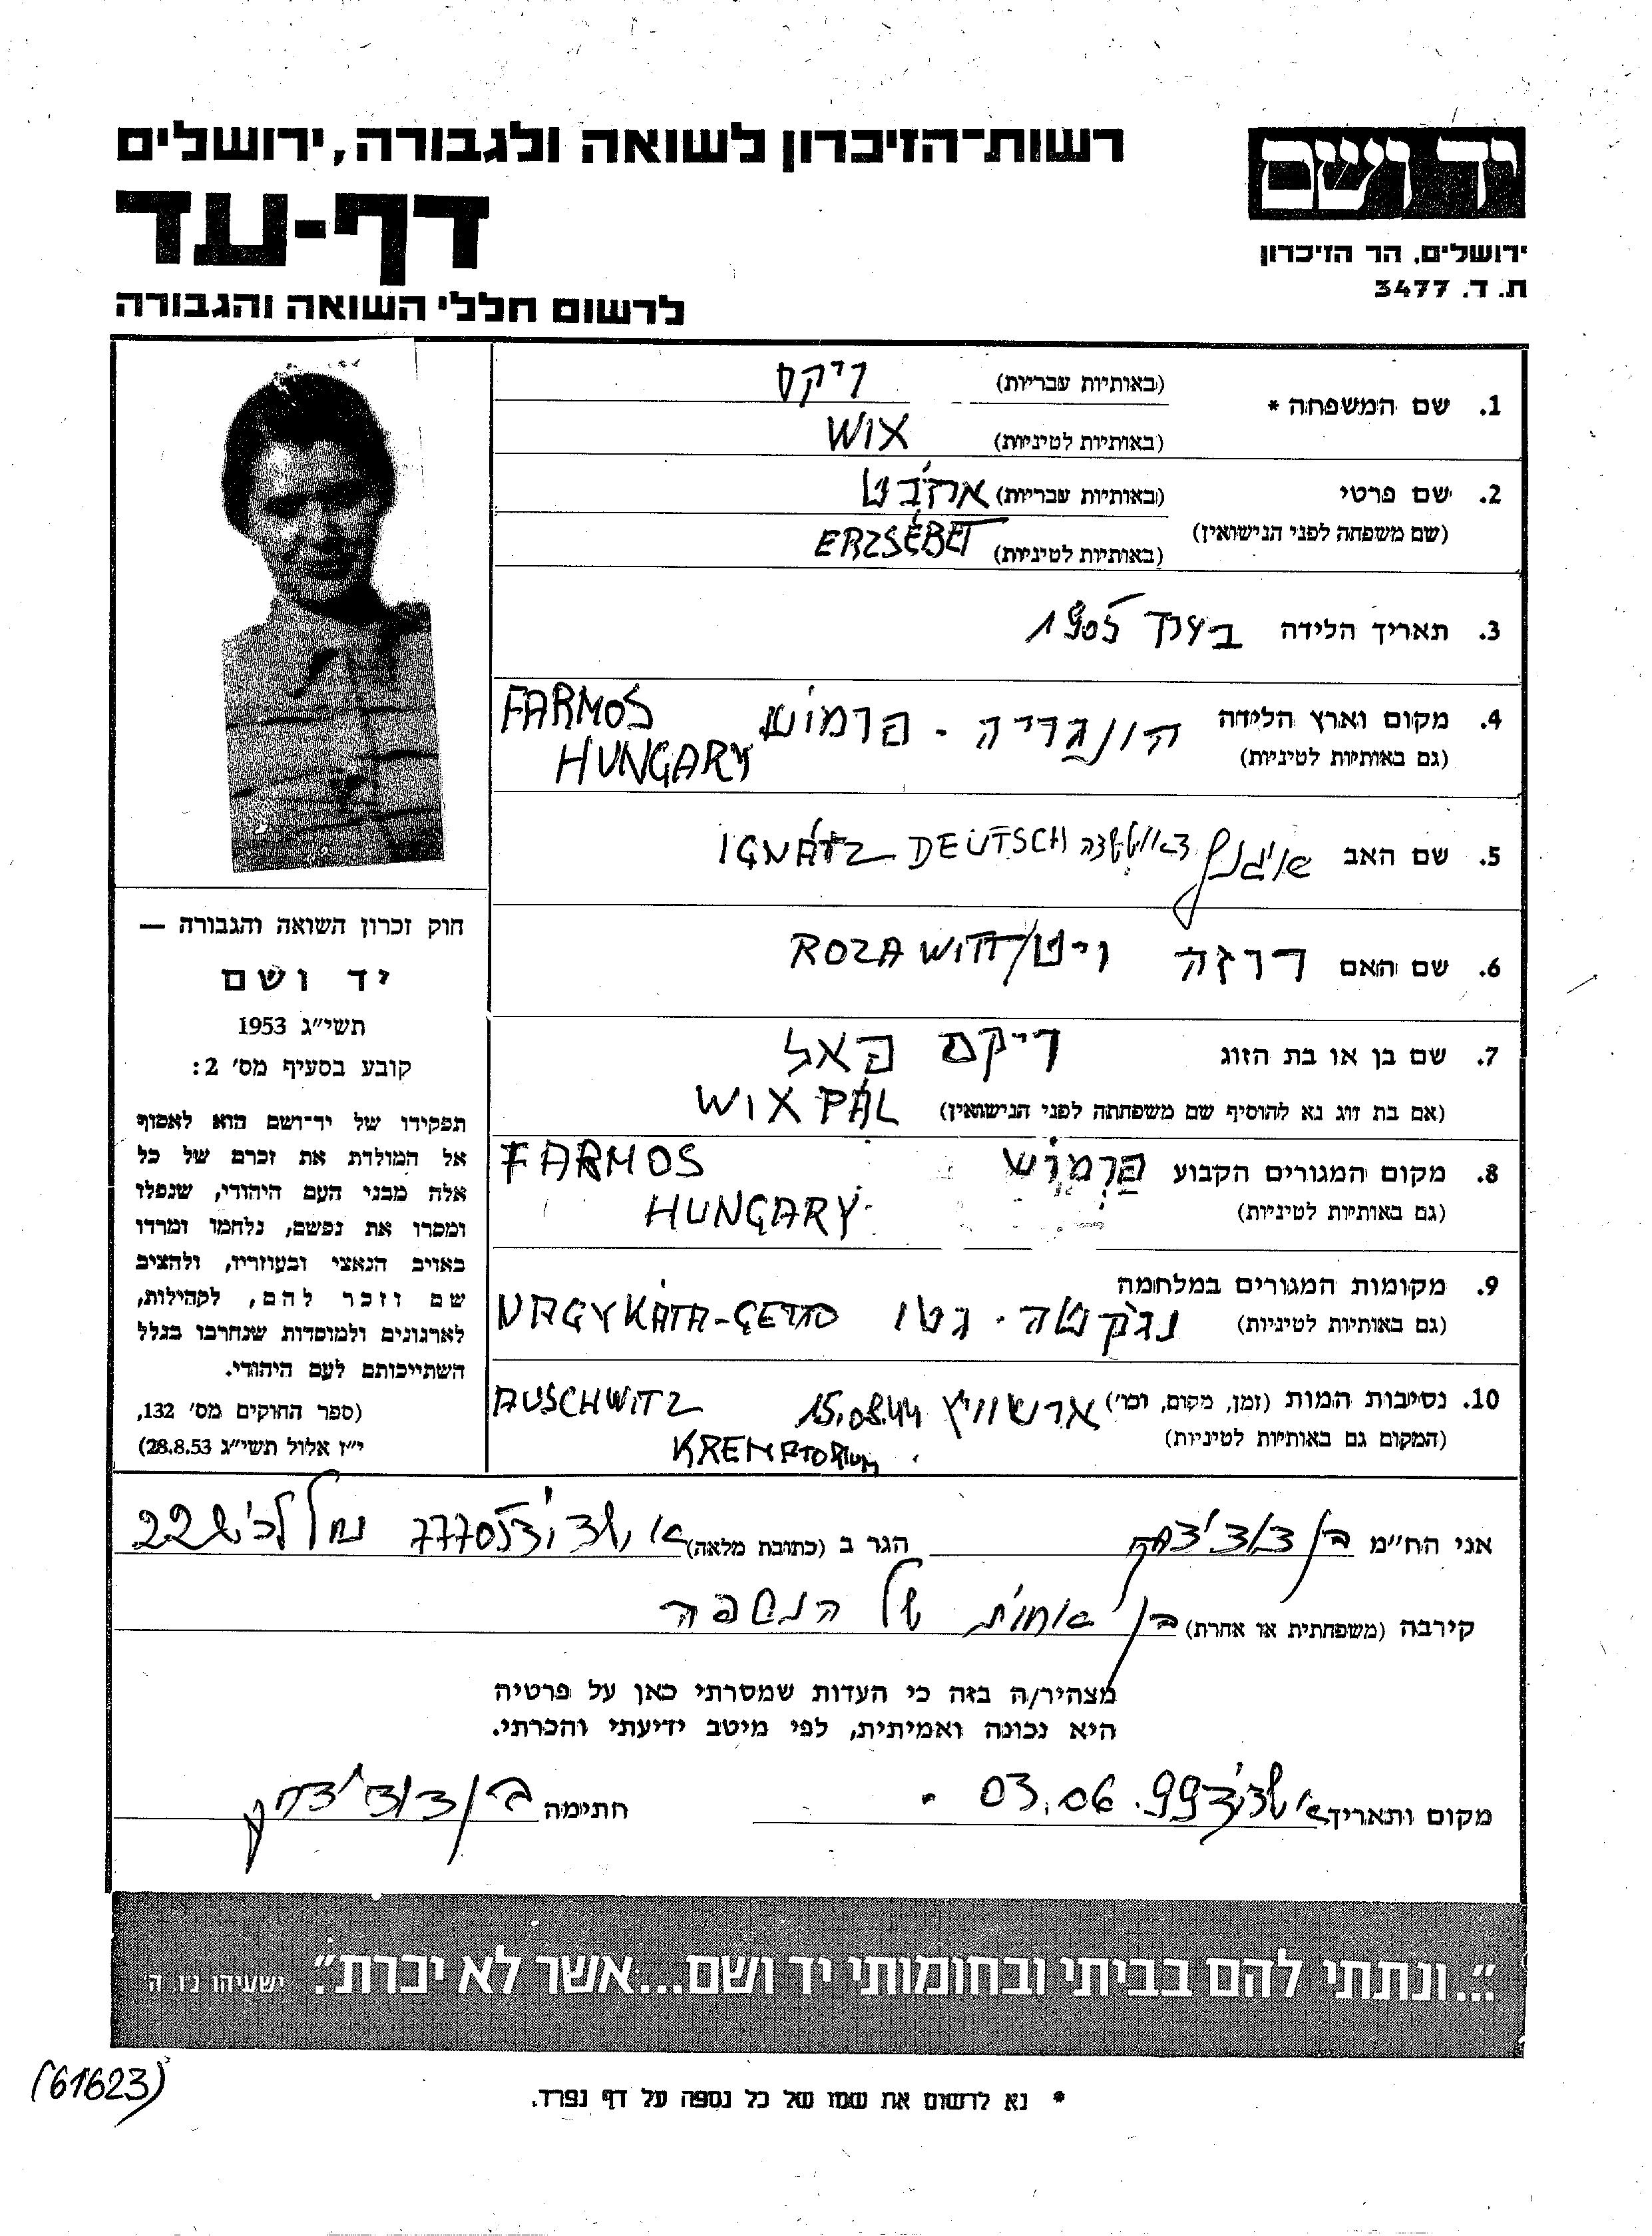 רשות־הזיכרון לשואה ולגבורה, ירושלים
דף-עד
לרשום חללי השואה והגבורה
יד ושם
ירושלים, הר הזיכרון
ת. ד. 3477
1. שם המשפחה * (באותיות עבריות) ויקס
(באותיות לטיניות) WIX
2. שם פרטי (באותיות עבריות) ארז'בט
(שם משפחה לפני הנישואין) (באותיות לטיניות) ERZSÉBET
3. תאריך הלידה בערך 1905
4. מקום וארץ הלידה הונגריה - פרמוש FARMOS
(גם באותיות לטיניות) HUNGARY
5. שם האב IGNÁTZ DEUTSCH
6. שם האם רוזה ויט/ROZA WITT
7. שם בן או בת הזוג ויקס פאל
(אם בת זוג נא להוסיף שם משפחתה לפני הנישואין) WIX PÁL
8. מקום המגורים הקבוע פרמוש FARMOS
(גם באותיות לטיניות) HUNGARY
9. מקומות המגורים במלחמה
(גם באותיות לטיניות) נג'קטה - גטו NAGYKÁTA-GETTO
10. נסיבות המות (זמן, מקום, וכו') אושוויץ 15.08.44 AUSCHWITZ
(המקום גם באותיות לטיניות) KREMATORIUM
חוק זכרון השואה והגבורה —
יד ושם
תשי"ג 1953
קובע בסעיף מס' 2:
תפקידו של יד־ושם הוא לאסוף
אל המולדת את זכרם של כל
אלה מבני העם היהודי, שנפלו
ומסרו את נפשם, נלחמו ומרדו
באויב הנאצי ובעוזריו, ולהציב
שם וזכר להם, לקהילות,
לארגונים ולמוסדות שנחרבו בגלל
השתייכותם לעם היהודי.
(ספר החוקים מס' 132,
י"ז אלול תשי"ג 28.8.53)
אני הח"מ בן צור יצחק הגר ב (כתובת מלאה) אשדוד 77705 נחל לכיש 22
קירבה (משפחתית או אחרת) בן אחות של הנספה
מצהיר/ה בזה כי העדות שמסרתי כאן על פרטיה
היא נכונה ואמיתית, לפי מיטב ידיעתי והכרתי.
מקום ותאריך אשדוד 03.06.99 חתימה בן צור יצחק
"...ונתתי להם בביתי ובחומותי יד ושם...אשר לא יכרת". ישעיהו נ"ו ה'
* נא לרשום את שמו של כל נספה על דף נפרד.
(61623)